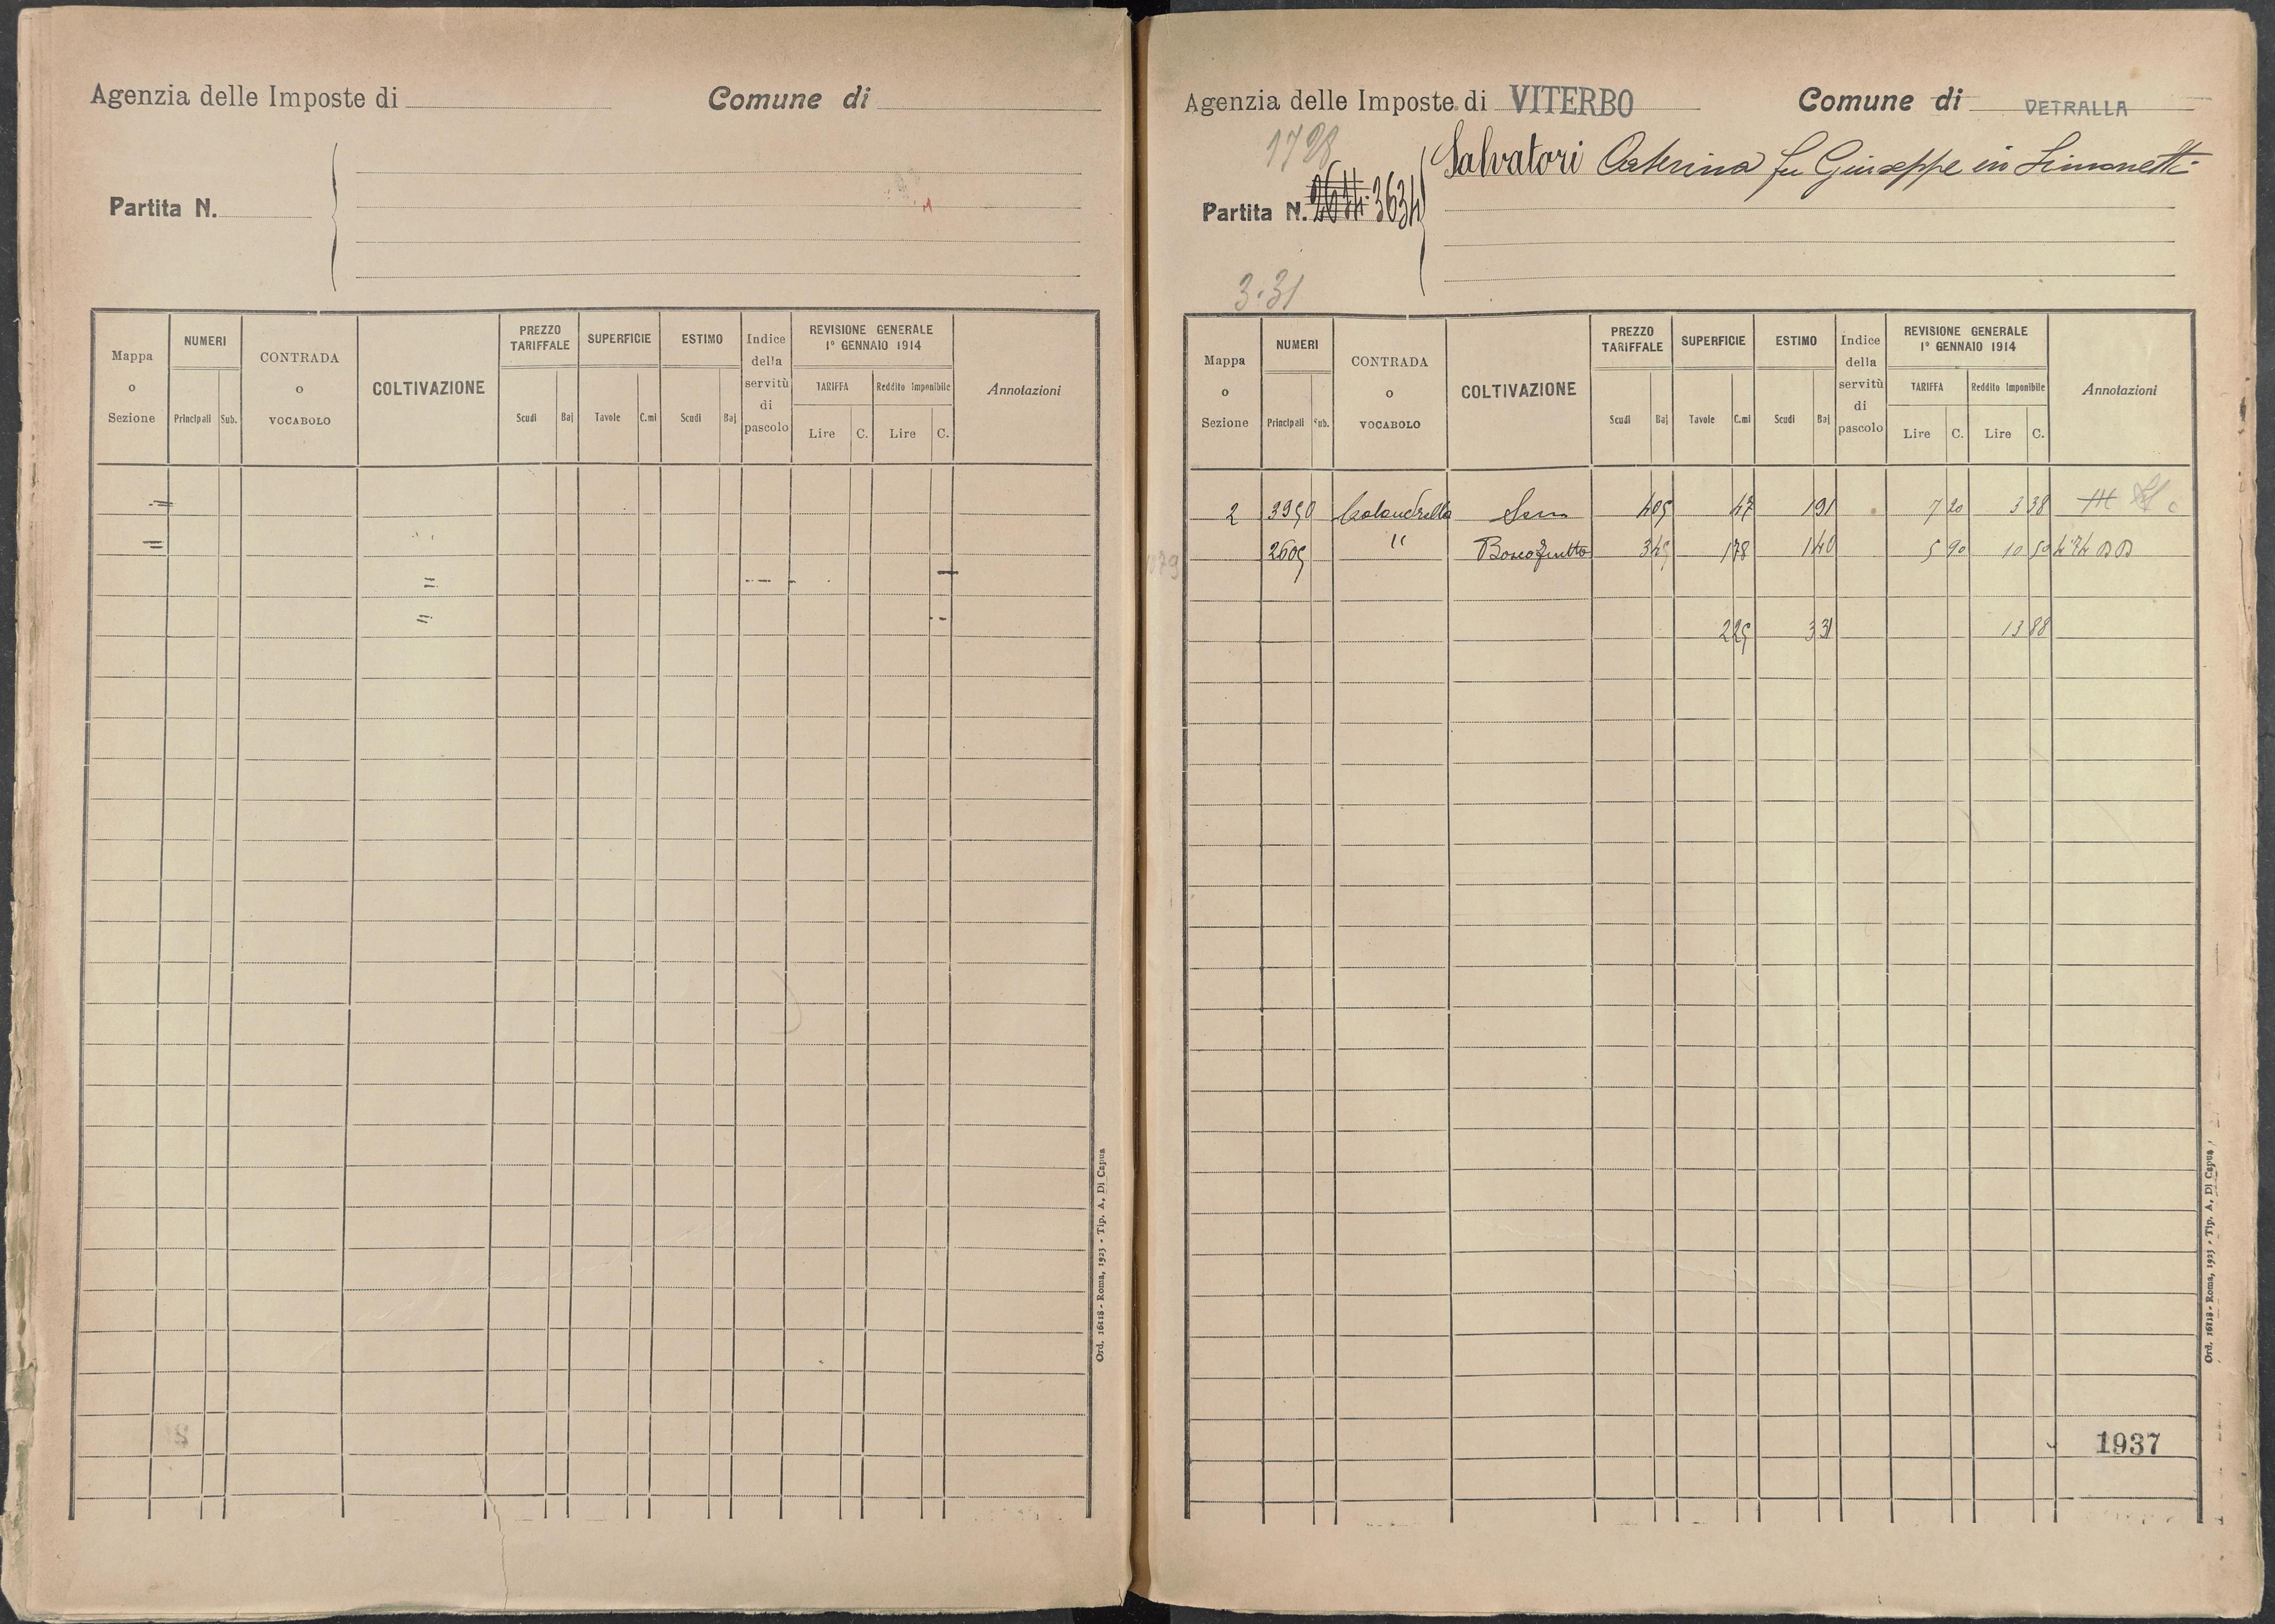 Agenzia delle Imposte di
Comune di
Partita N.
Mappa o Sezione
NUMERI
Principali
Sub.
CONTRADA o VOCABOLO
COLTIVAZIONE
PREZZO TARIFFALE
Scudi
Baj
SUPERFICIE
Tavole
C.mi
ESTIMO
Scudi
Baj
Indice della servitù di pascolo
REVISIONE GENERALE
1° GENNAIO 1914
TARIFFA
Reddito Imponibile
Lire
C.
Lire
C.
Annotazioni
Ord. 16118 - Roma, 1923 - Tip. A. Di Capua
Agenzia delle Imposte di VITERBO
Comune di VETRALLA
1728
Salvatori Caterina fu Giuseppe in Simonetti
Partita N. 3634
3.31
Mappa o Sezione
NUMERI
Principali
Sub.
CONTRADA o VOCABOLO
COLTIVAZIONE
PREZZO TARIFFALE
Scudi
Baj
SUPERFICIE
Tavole
C.mi
ESTIMO
Scudi
Baj
Indice della servitù di pascolo
REVISIONE GENERALE
1° GENNAIO 1914
TARIFFA
Reddito Imponibile
Lire
C.
Lire
C.
Annotazioni
2 3950 Calandrella Sem 4 05 47 1 91 7 20 3 38
2605 " Bosco frutto 3 45 1 78 1 40 5 90 10 50
2 25 3 31 13 88
1937
Ord. 16118 - Roma, 1923 - Tip. A. Di Capua